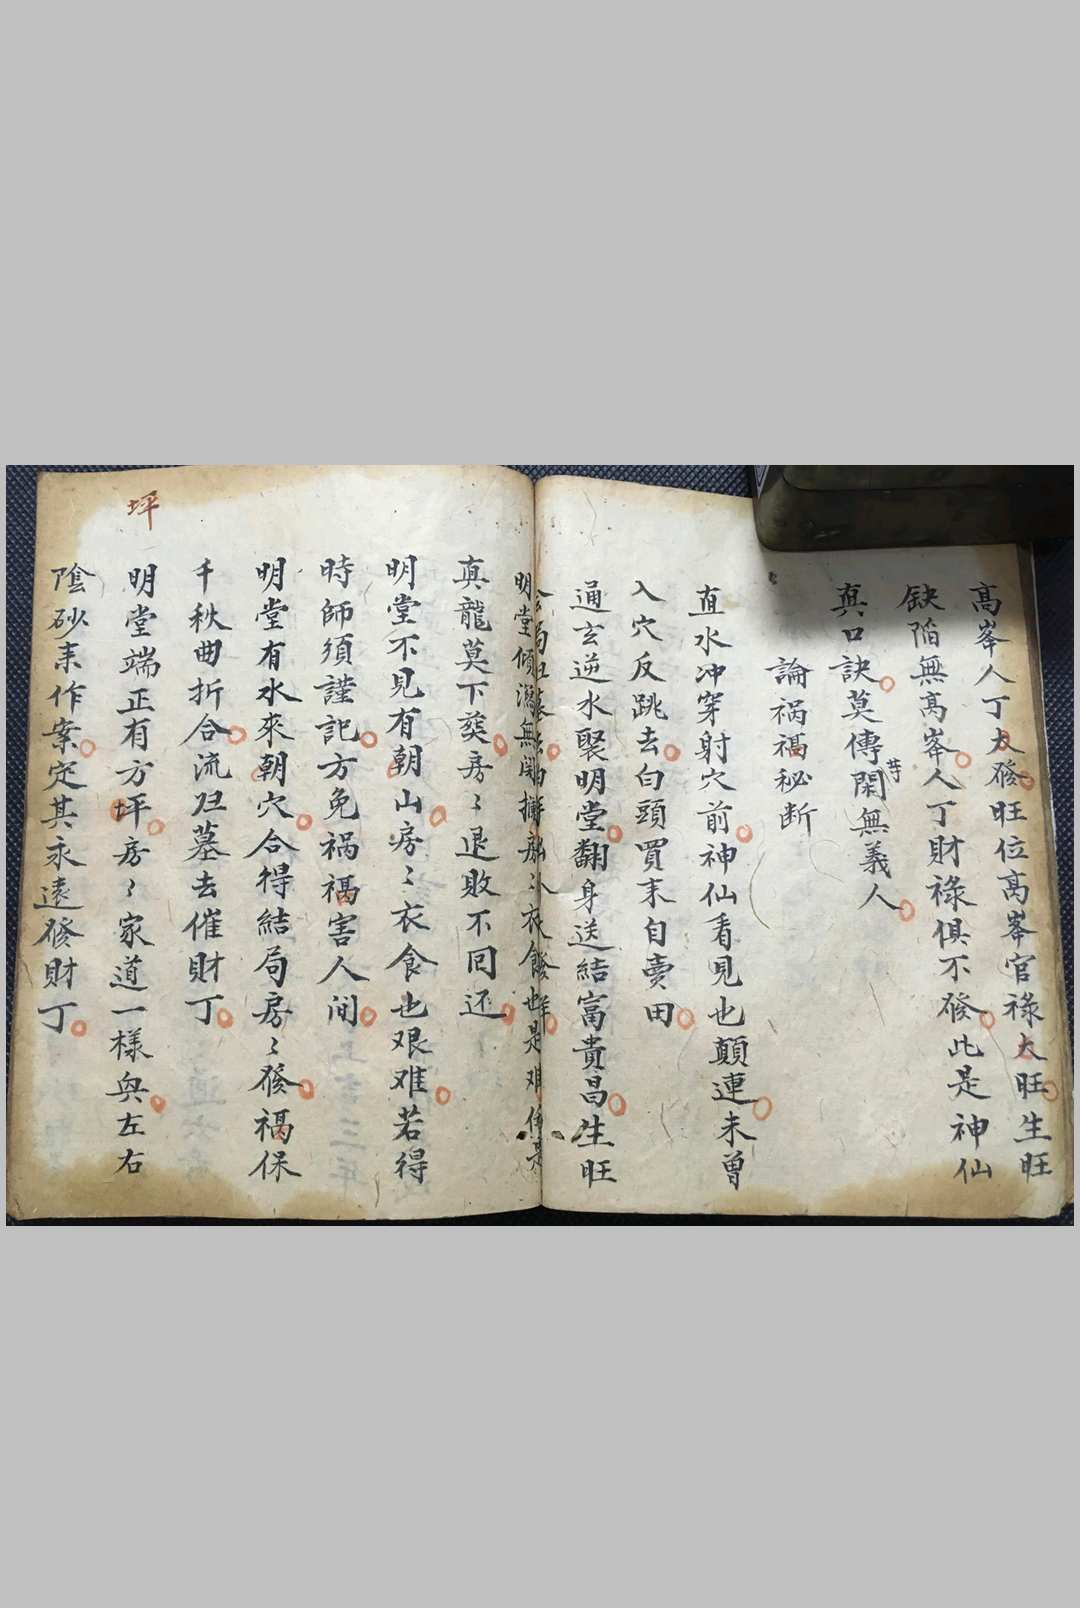 高峯人丁大發旺位高峯官祿大旺生旺
缺陷無高峯人丁財祿俱不發此是神仙
真口訣莫傳閑等無義人
論禍福秘断
直水冲穿射穴前神仙看見也顛連未曾
入穴反跳去白頭買耒自賣田
通玄逆水聚明堂翻身送結富貴昌生旺
明堂傾瀉無関攔
衣食也是难
真龍莫下葵房〻退敗不囘还
明堂不見有朝山房〻衣食也艰难若得
時師須謹記方免禍福害人间
明堂有水來朝穴合得結局房〻發福保
千秋曲折合流归墓去催財丁
坪
明堂端正有方坪房〻家道一樣與左右
陰砂耒作案定其永遠發財丁